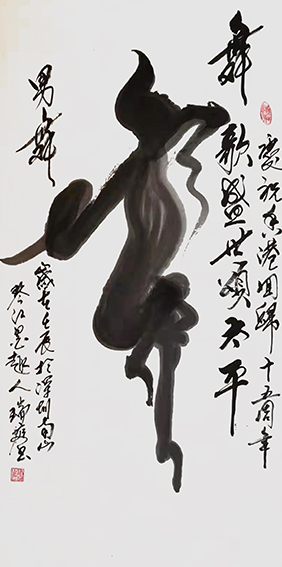 舞歌盛世頌太平
慶祝香港回歸十五周年
男舞
歲在壬辰於深圳南山
琴江墨趣人瑞